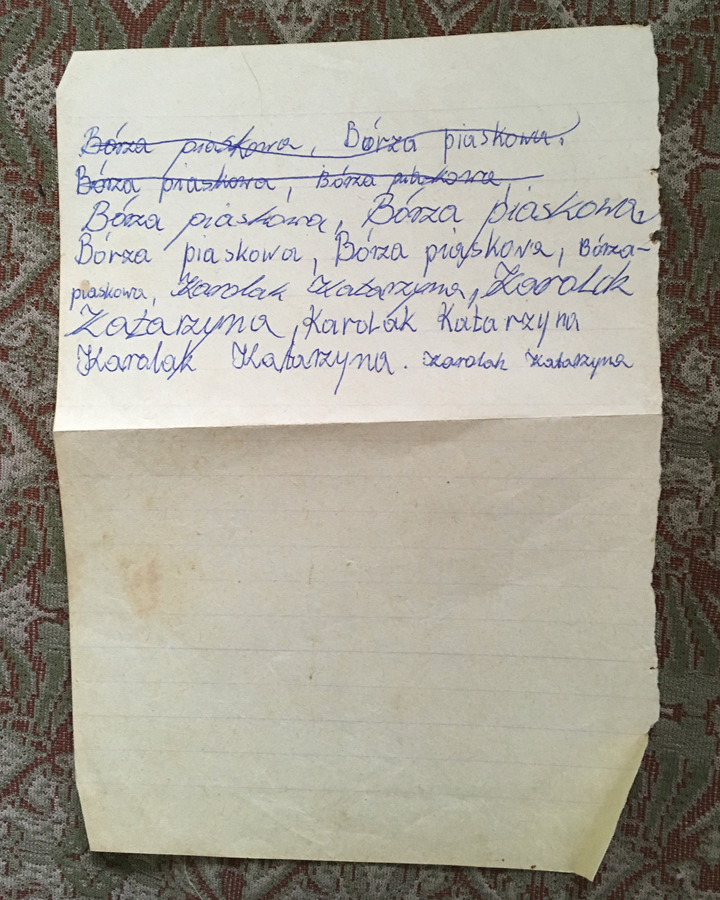 Bórza piaskowa, Bórza piaskowa.
Bórza piaskowa, Bórza piaskowa,
Bórza piaskowa, Bórza piaskowa,
Bórza piaskowa, Bórza piaskowa, Bórza-
piaskowa, Karolak Katarzyna, Karolak
Katarzyna, Karolak Katarzyna
Karolak Katarzyna. Karolak Katarzyna